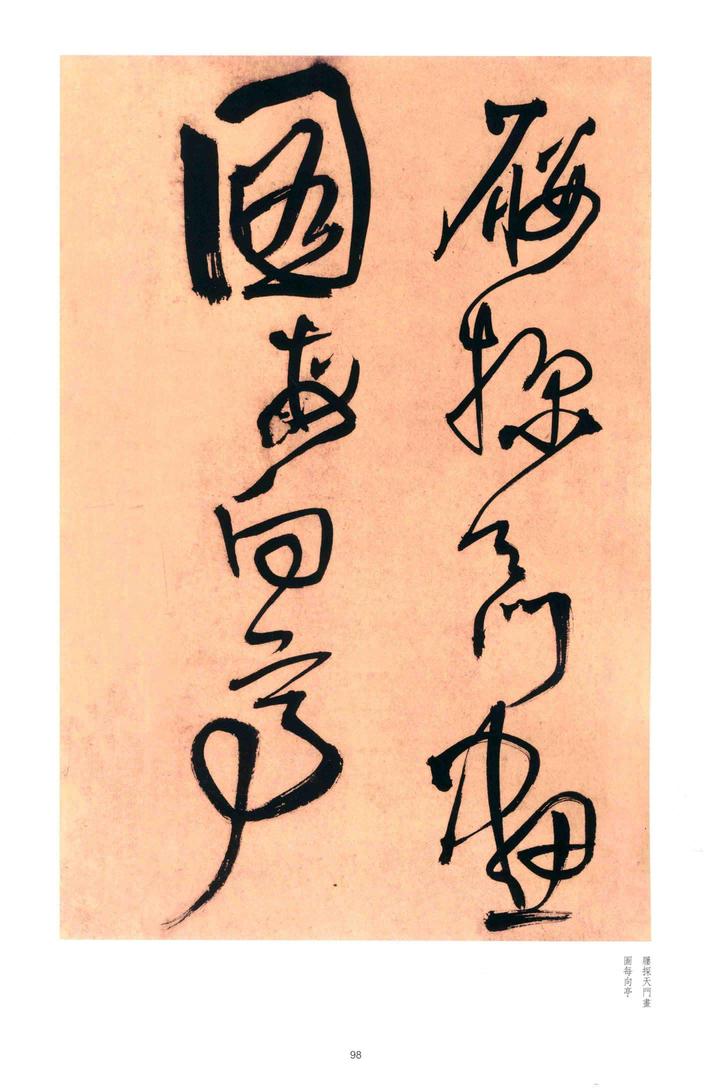 屢探天門畫
圖每向亭
屢探天門畫
圖每向亭
98